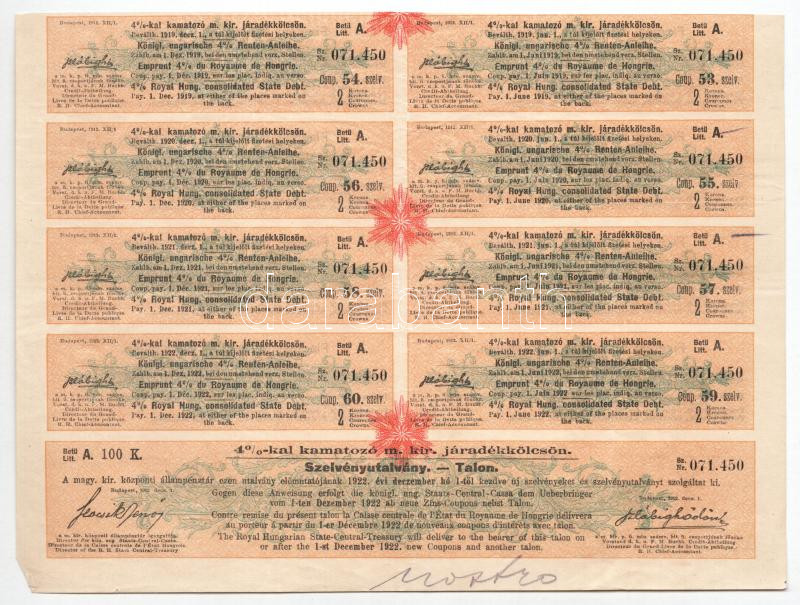 Budapest, 1912. XII/1.
4%-kal kamatozó m. kir. járadékkölcsön.
Beválth. 1919. decz. 1., a túl kijelölt fizetési helyeken.
Königl. ungarische 4% Renten-Anleihe.
Zahlb. am 1. Dez. 1919, bei den umstehend verz. Stellen.
Emprunt 4% du Royaume de Hongrie.
Coup. pay. 1 Déc. 1919, sur les plac. indiq. au verso.
4% Royal Hung. consolidated State Debt.
Pay. 1 Dec. 1919, at either of the places marked on
the back.
Betű
Litt. A.
Sz.
Nr. 071.450
Coup. 54. szelv.
2 Korona.
Kronen.
Couronnes.
Crowns.
Budapest, 1912. XII/1.
4%-kal kamatozó m. kir. járadékkölcsön.
Beválth. 1919. jun. 1., a túl kijelölt fizetési helyeken.
Königl. ungarische 4% Renten-Anleihe.
Zahlb. am 1. Juni 1919, bei den umstehend verz. Stellen.
Emprunt 4% du Royaume de Hongrie.
Coup. pay. 1 Juin 1919, sur les plac. indiq. au verso.
4% Royal Hung. consolidated State Debt.
Pay. 1 June 1919, at either of the places marked on
the back.
Betű
Litt. A.
Sz.
Nr. 071.450
Coup. 53. szelv.
2 Korona.
Kronen.
Couronnes.
Crowns.
Budapest, 1912. XII/1.
4%-kal kamatozó m. kir. járadékkölcsön.
Beválth. 1920. decz. 1., a túl kijelölt fizetési helyeken.
Königl. ungarische 4% Renten-Anleihe.
Zahlb. am 1. Dez. 1920, bei den umstehend verz. Stellen.
Emprunt 4% du Royaume de Hongrie.
Coup. pay. 1 Déc. 1920, sur les plac. indiq. au verso.
4% Royal Hung. consolidated State Debt.
Pay. 1 Dec. 1920, at either of the places marked on
the back.
Betű
Litt. A.
Sz.
Nr. 071.450
Coup. 56. szelv.
2 Korona.
Kronen.
Couronnes.
Crowns.
Budapest, 1912. XII/1.
4%-kal kamatozó m. kir. járadékkölcsön.
Beválth. 1920. jun. 1., a túl kijelölt fizetési helyeken.
Königl. ungarische 4% Renten-Anleihe.
Zahlb. am 1. Juni 1920, bei den umstehend verz. Stellen.
Emprunt 4% du Royaume de Hongrie.
Coup. pay. 1 Juin 1920, sur les plac. indiq. au verso.
4% Royal Hung. consolidated State Debt.
Pay. 1 June 1920, at either of the places marked on
the back.
Betű
Litt. A.
Sz.
Nr. 071.450
Coup. 55. szelv.
2 Korona.
Kronen.
Couronnes.
Crowns.
Budapest, 1912. XII/1.
4%-kal kamatozó m. kir. járadékkölcsön.
Beválth. 1921. decz. 1., a túl kijelölt fizetési helyeken.
Königl. ungarische 4% Renten-Anleihe.
Zahlb. am 1. Dez. 1921, bei den umstehend verz. Stellen.
Emprunt 4% du Royaume de Hongrie.
Coup. pay. 1 Déc. 1921, sur les plac. indiq. au verso.
4% Royal Hung. consolidated State Debt.
Pay. 1 Dec. 1921, at either of the places marked on
the back.
Betű
Litt. A.
Sz.
Nr. 071.450
Coup. 58. szelv.
2 Korona.
Kronen.
Couronnes.
Crowns.
Budapest, 1912. XII/1.
4%-kal kamatozó m. kir. járadékkölcsön.
Beválth. 1921. jun. 1., a túl kijelölt fizetési helyeken.
Königl. ungarische 4% Renten-Anleihe.
Zahlb. am 1. Juni 1921, bei den umstehend verz. Stellen.
Emprunt 4% du Royaume de Hongrie.
Coup. pay. 1 Juin 1921, sur les plac. indiq. au verso.
4% Royal Hung. consolidated State Debt.
Pay. 1 June 1921, at either of the places marked on
the back.
Betű
Litt. A.
Sz.
Nr. 071.450
Coup. 57. szelv.
2 Korona.
Kronen.
Couronnes.
Crowns.
darabanth
Budapest, 1912. XII/1.
4%-kal kamatozó m. kir. járadékkölcsön.
Beválth. 1922. decz. 1., a túl kijelölt fizetési helyeken.
Königl. ungarische 4% Renten-Anleihe.
Zahlb. am 1. Dez. 1922, bei den umstehend verz. Stellen.
Emprunt 4% du Royaume de Hongrie.
Coup. pay. 1 Déc. 1922, sur les plac. indiq. au verso.
4% Royal Hung. consolidated State Debt.
Pay. 1 Dec. 1922, at either of the places marked on
the back.
Betű
Litt. A.
Sz.
Nr. 071.450
Coup. 60. szelv.
2 Korona.
Kronen.
Couronnes.
Crowns.
Budapest, 1912. XII/1.
4%-kal kamatozó m. kir. járadékkölcsön.
Beválth. 1922. jun. 1., a túl kijelölt fizetési helyeken.
Königl. ungarische 4% Renten-Anleihe.
Zahlb. am 1. Juni 1922, bei den umstehend verz. Stellen.
Emprunt 4% du Royaume de Hongrie.
Coup. pay. 1 Juin 1922, sur les plac. indiq. au verso.
4% Royal Hung. consolidated State Debt.
Pay. 1 June 1922, at either of the places marked on
the back.
Betű
Litt. A.
Sz.
Nr. 071.450
Coup. 59. szelv.
2 Korona.
Kronen.
Couronnes.
Crowns.
Betű
Litt. A. 100 K.
4%-kal kamatozó m. kir. járadékkölcsön.
Sz.
Nr. 071.450
Szelvényutalvány. — Talon.
A magy. kir. központi állampénztár ezen utalvány előmutatójának 1922. évi deczember hó 1-től kezdve új szelvényeket és szelvényutalványt szolgáltat ki.
Gegen diese Anweisung erfolgt die königl. ung. Staats-Central-Cassa dem Ueberbringer
vom 1-ten Dezember 1922 ab neue Zins-Coupons nebst Talon.
Contre remise du présent talon la Caisse centrale de l'État du Royaume de Hongrie délivrera
au porteur à partir du 1-er Décembre 1922 de nouveaux coupons d'intérêts avec talon.
The Royal Hungarian State-Central-Treasury will deliver to the bearer of this talon on
or after the 1-st December 1922. new Coupons and another talon.
Budapest, 1912. decz. 1.
a m. kir. központi állampénztár igazgatója.
Director for kön. ung. Staats-Central-Cassa.
Directeur de la Caisse centrale de l'État Hongrois.
Director of the R. H. State Central-Treasury.
Budapest, 1912. decz. 1.
R. H. Chief-Accountant.
nostro